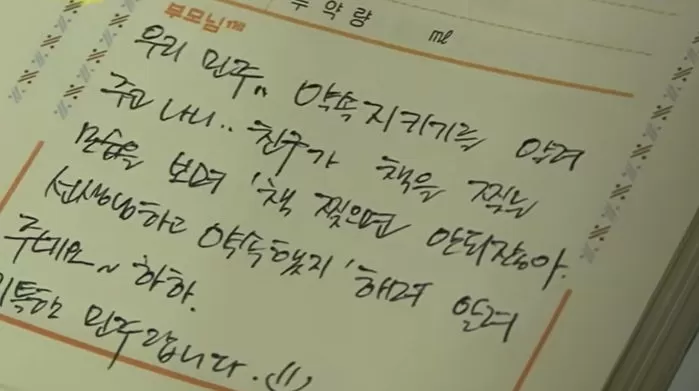 투약량 ㎖
부모님께
우리 민주~ 약속지키기를 알려
주고 나니.. 친구가 책을 찢는
모습을 보며 '책 찢으면 안되잖아.
선생님하고 약속했지' 해며 알려
주네요~ 하하.
기특한 민주랍니다.